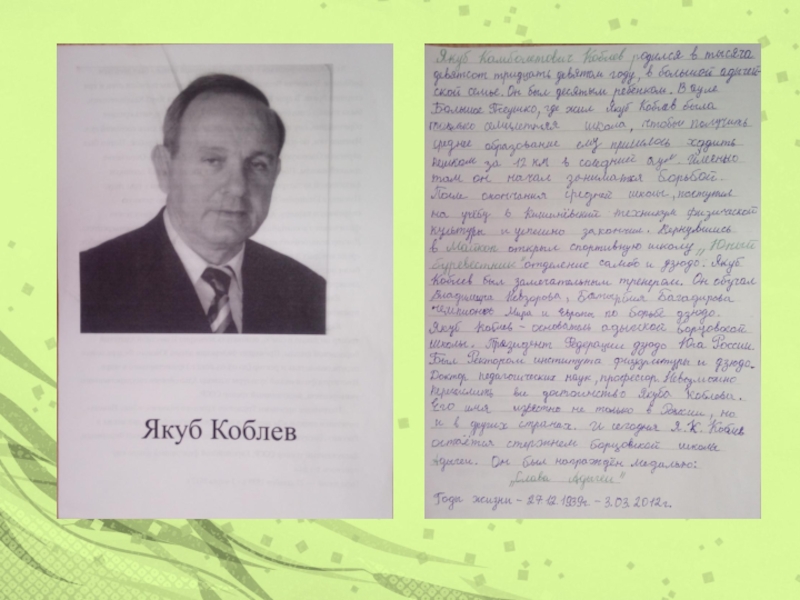 Якуб Коблев
Якуб Камболетович Коблев родился в тысяча
девятсот тридцать девятом году, в большой адыгей-
ской семье. Он был десятым ребенком. В ауле
Большое Псеушхо, где жил Якуб Коблев была
только семилетняя школа, чтобы получить
среднее образование ему пришлось ходить
пешком за 12 км в соседний аул. Именно
там он начал заниматся борьбой.
После окончания средней школы, поступил
на учёбу в Кишинёвский техникум физической
культуры и успешно закончил. Вернувшись
в Майкоп открыл спортивную школу „Юный
буревестник" отделение самбо и дзюдо. Якуб
Коблев был замечательным тренером. Он обучал
Владимира Невзорова,
чемпионов Мира и Европы по борьбе дзюдо.
Якуб Коблев - основатель адыгской борцовской
школы. Президент Федерации дзюдо Юга России.
Был Ректором института физкультуры и дзюдо.
Доктор педагогических наук, профессор. Невозможно
перечислить все достоинства Якуба Коблева.
Его имя известно не только в России, но
и в других странах. И сегодня Я. К. Коблев
остаётся стержнем борцовской школы
Адыгеи. Он был награждён медалью:
„Слава Адыгеи"
Года жизни - 27.12.1939г. - 3.03.2012г.